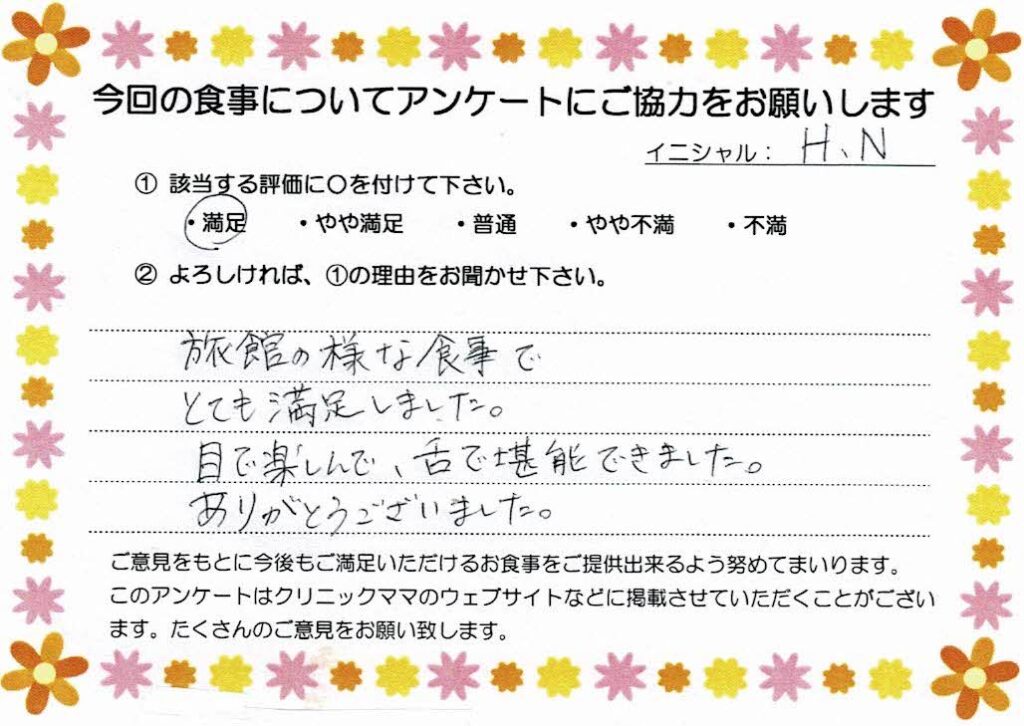 今回の食事についてアンケートにご協力をお願いします
イニシャル： H、N
① 該当する評価に〇を付けて下さい。
・満足 ・やや満足 ・普通 ・やや不満 ・不満
② よろしければ、①の理由をお聞かせ下さい。
旅館の様な食事で
とても満足しました。
目で楽しんで、舌で堪能できました。
ありがとうございました。
ご意見をもとに今後もご満足いただけるお食事をご提供出来るよう努めてまいります。
このアンケートはクリニックママのウェブサイトなどに掲載させていただくことがござい
ます。たくさんのご意見をお願い致します。